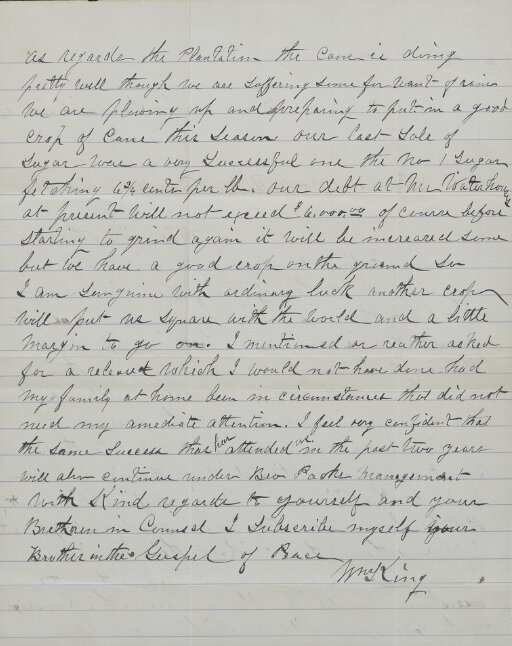 as regards the Plantation the Cane is doing
pretty well though we are suffering some for want of rain
we are plowing up and preparing to put in a good
crop of Cane this Season our last Sale of
Sugar were a very Successful one the No 1 Sugar
fetching 6¾ cents per lb. our debt at Mr Waterhouses
at present will not exceed $6,000.00 of course before
starting to grind again it will be increased some
but we have a good crop on the ground So
I am Sanguine with ordinary luck another crop
will put us square with the World and a little
margin to go on. I mentioned or reather asked
for a release which I would not have done had
my family at home been in circumstances that did not
need my amediate attention. I feel very confident that
the same Success that has attended us in the past two years
will also continue under Bro Parks management
With Kind regards to yourself and your
Brethren in Counsel I Subscribe myself your
Brother in the Gospel of Peace
Wm King